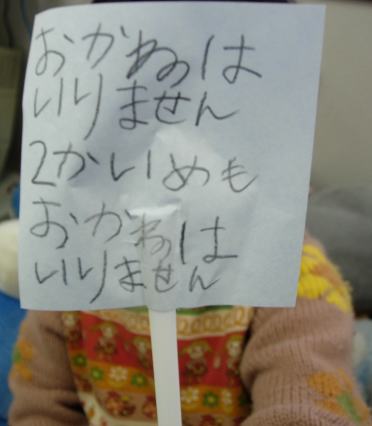 おかねは
いりません
2かいめも
おかねは
いりません